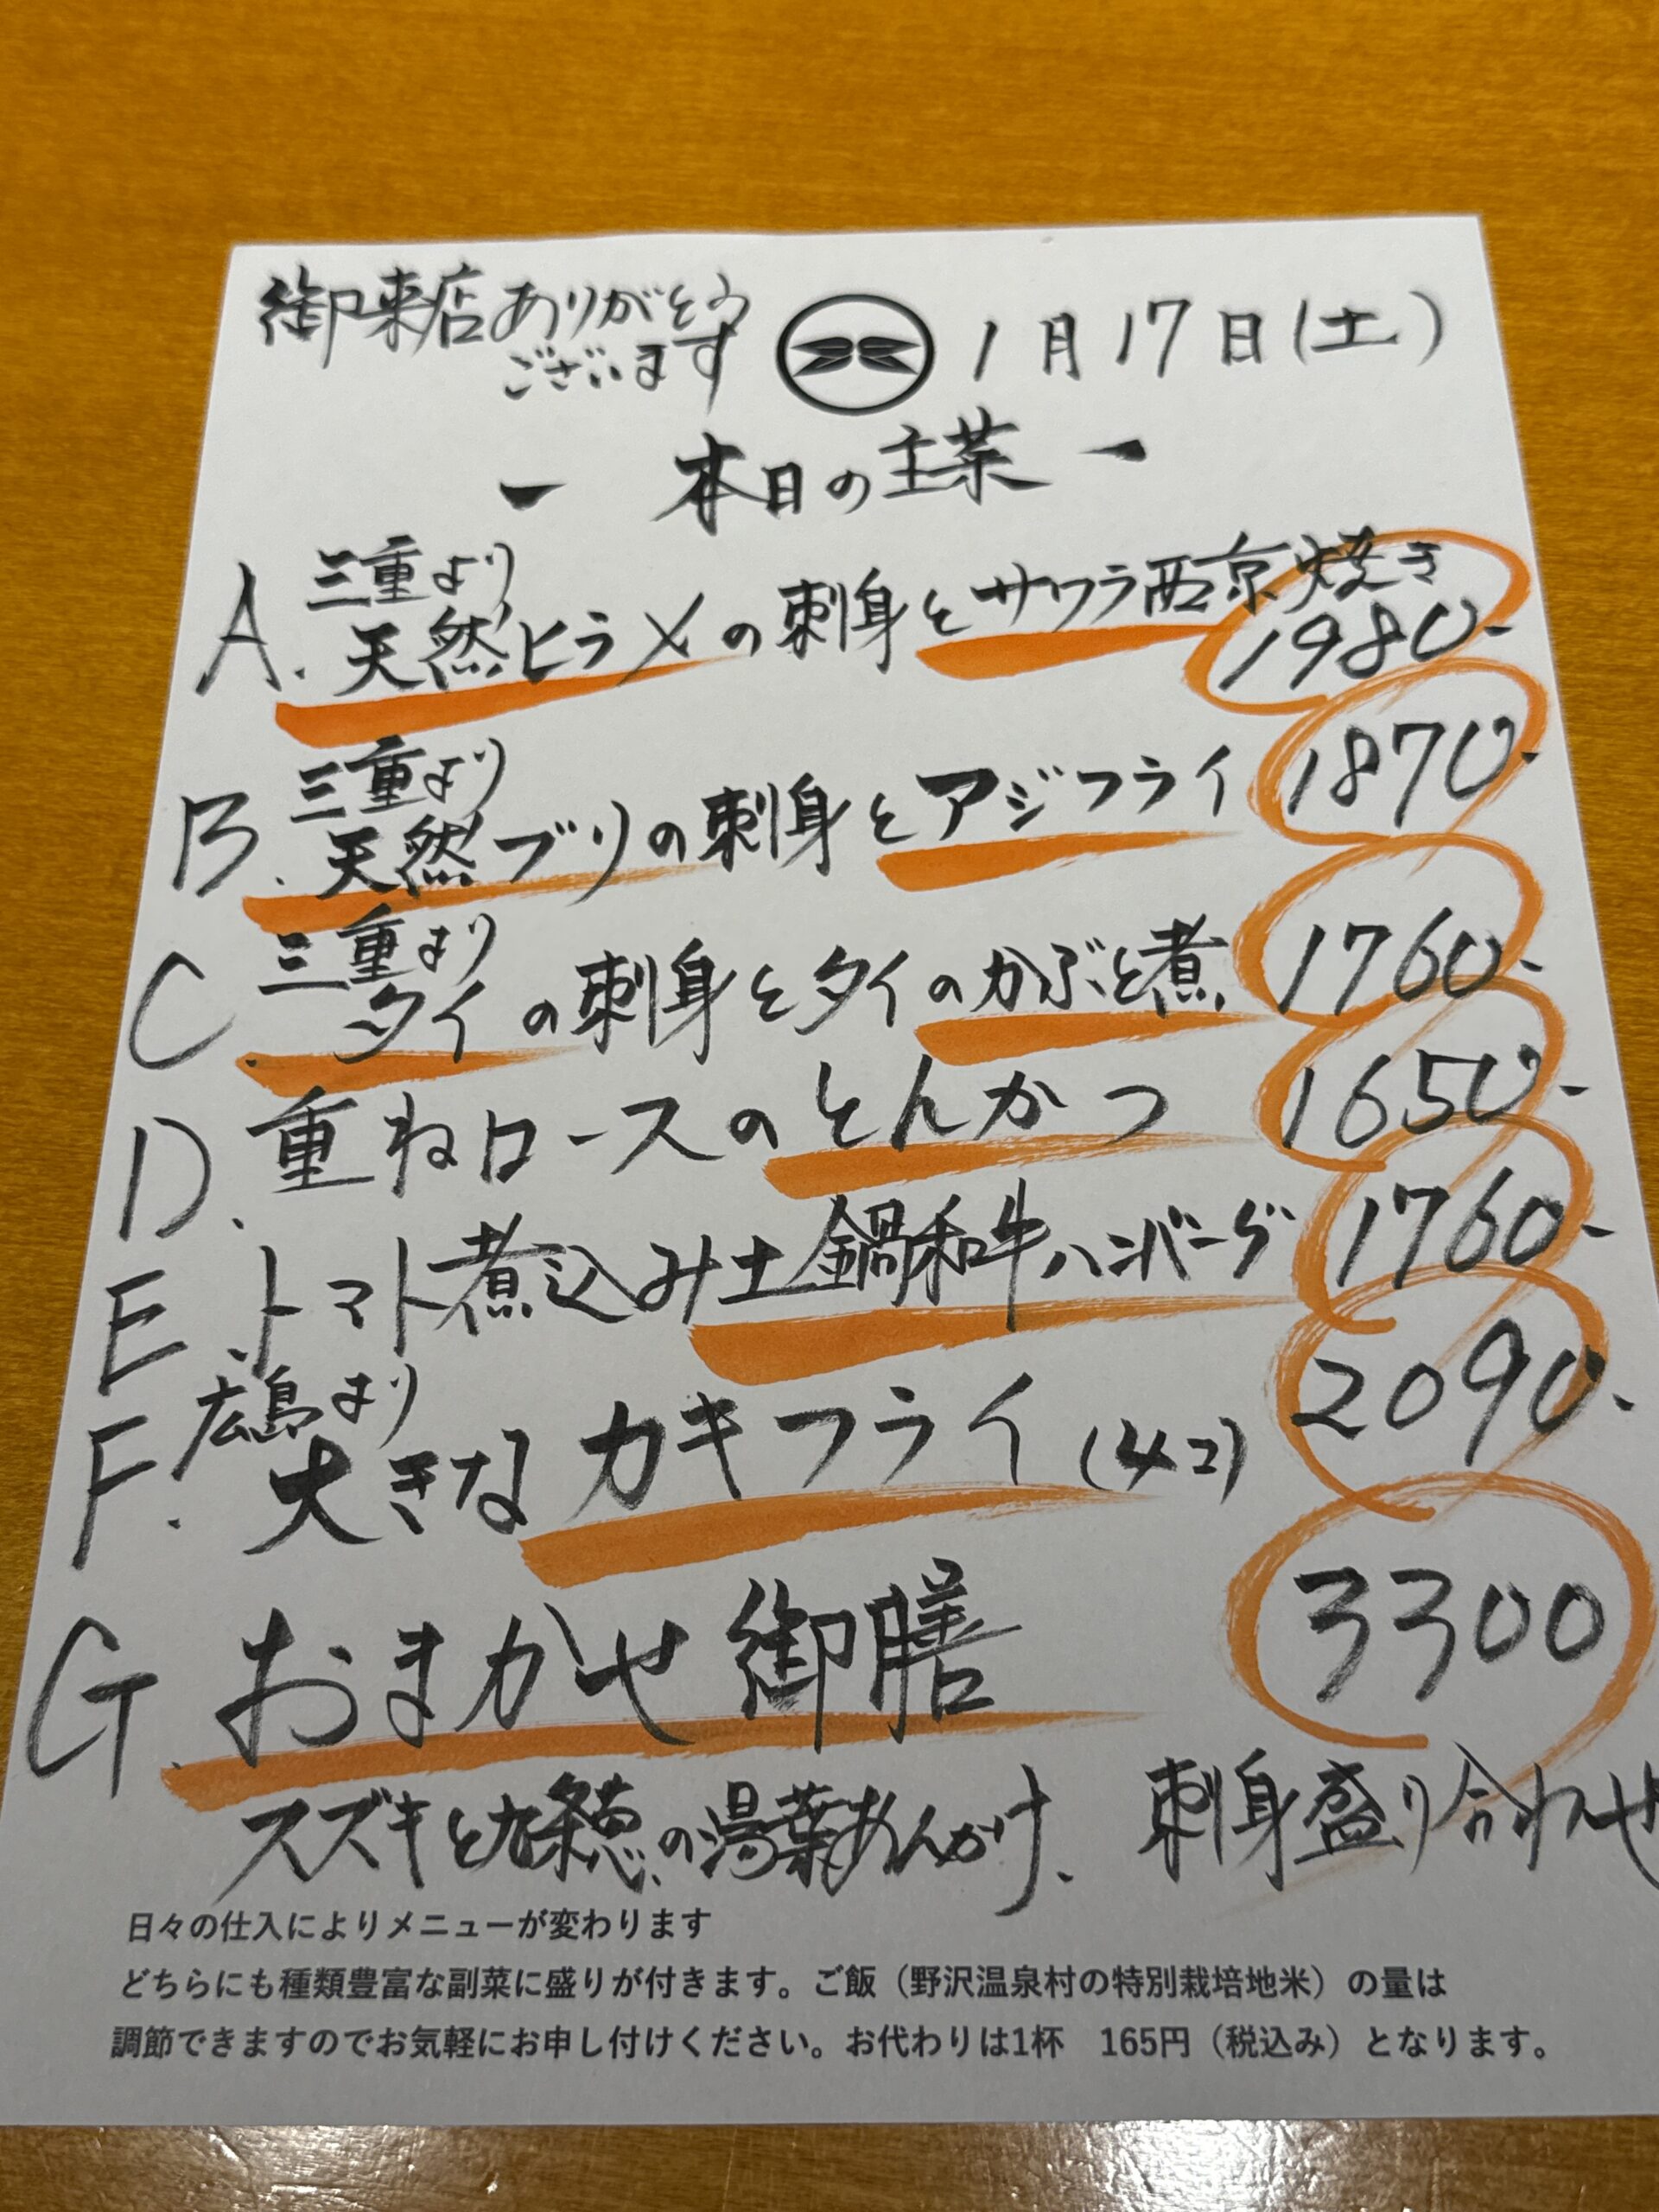 御来店ありがとう
ございます
1月17日(土)
ー 本日の主菜 ー
三重より
A. 天然ヒラメの刺身とサワラ西京焼き
1980-
三重より
B. 天然ブリの刺身とアジフライ 1870-
三重より
C. タイの刺身とタイのかぶと煮 1760-
D. 重ねロースのとんかつ 1650-
E. トマト煮込み土鍋和牛ハンバーグ 1760-
広島より
F. 大きなカキフライ(4コ) 2090-
G. おまかせ御膳 3300
スズキと九条葱の湯葉あんかけ、刺身盛り合わせ
日々の仕入によりメニューが変わります
どちらにも種類豊富な副菜に盛りが付きます。ご飯（野沢温泉村の特別栽培地米）の量は
調節できますのでお気軽にお申し付けください。お代わりは1杯 165円（税込み）となります。